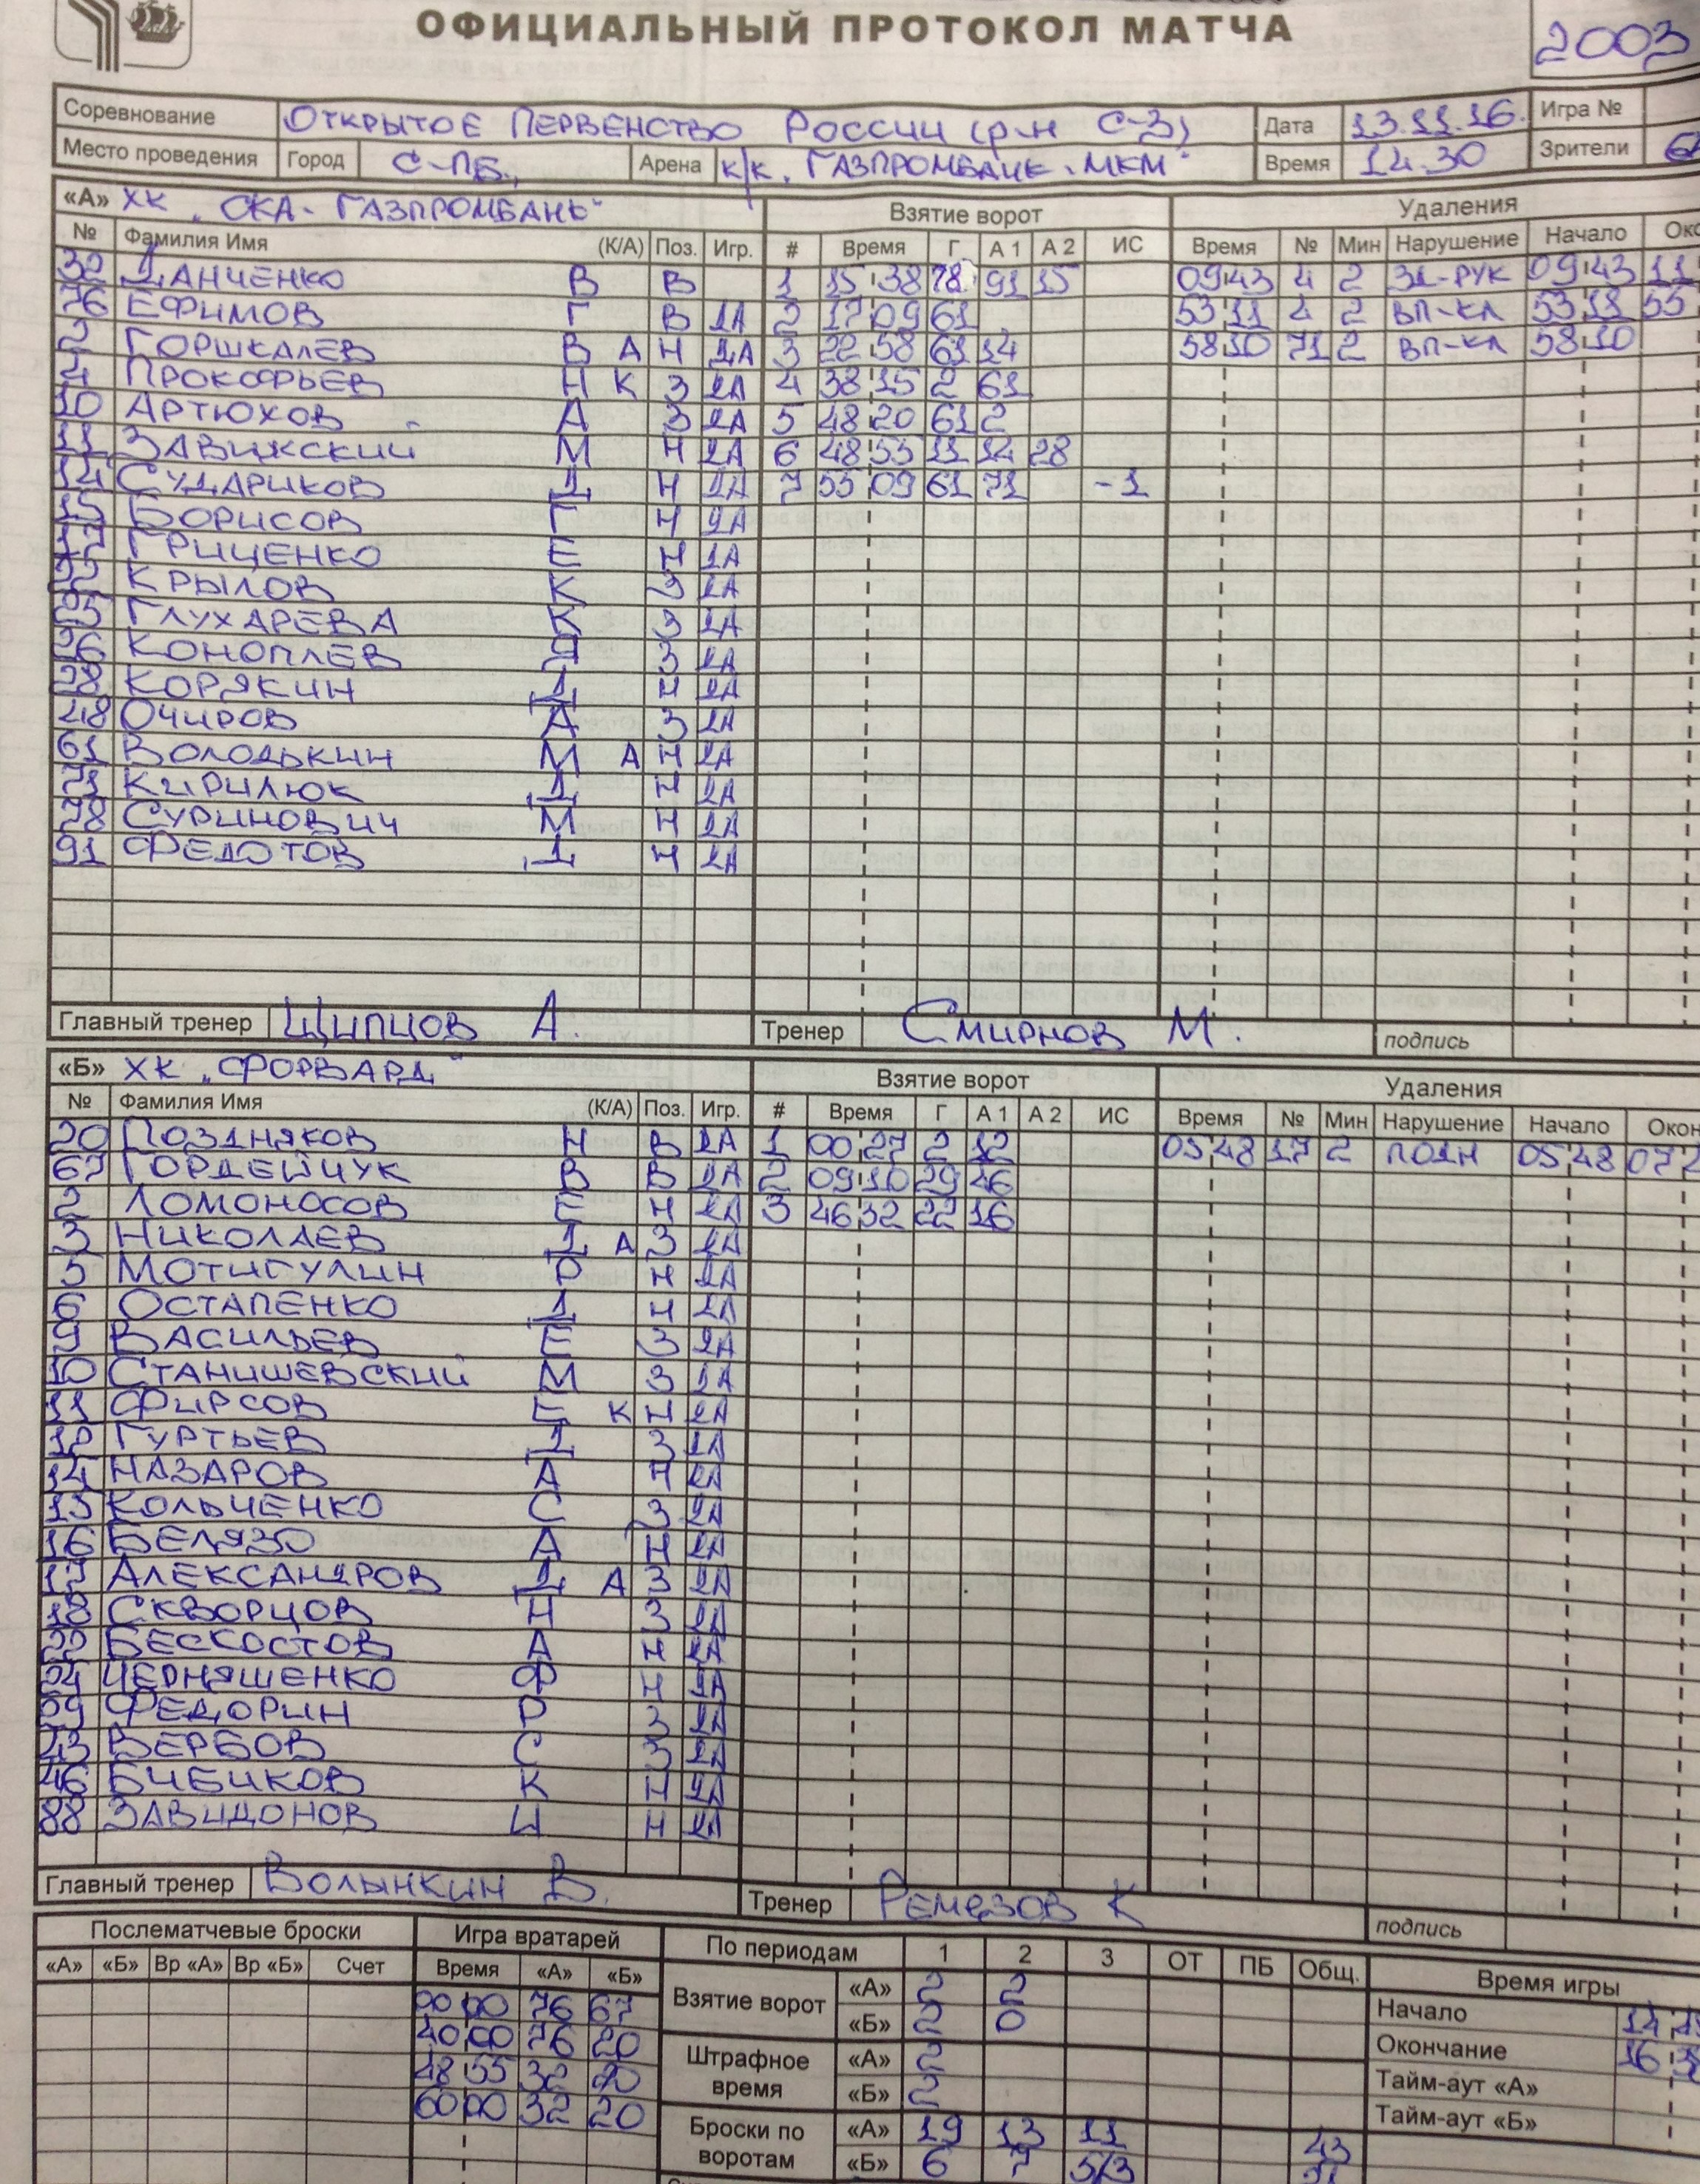 ОФИЦИАЛЬНЫЙ ПРОТОКОЛ МАТЧА 2003
Соревнование ОТКРЫТОЕ ПЕРВЕНСТВО РОССИИ (Р-Н С-З) Дата 13.11.16. Игра №
Место проведения Город С-ПБ., Арена К/К. ГАЗПРОМБАНК. МКМ" Время 14.30 Зрители
«А» ХК „СКА-ГАЗПРОМБАНК" Взятие ворот Удаления
№ Фамилия Имя (К/А) Поз. Игр. # Время Г А 1 А 2 ИС Время № Мин Нарушение Начало
32 ДАНЧЕНКО В В 1 15 38 78 91 15 09 43 4 2 ЗД-РУК 09 43 11
76 ЕФИМОВ Г В ДА 2 17 09 61 53 11 4 2 ВП-КЛ 53 11 55
2 ГОРШКАЛЕВ В А Н ДА 3 22 58 61 14 58 10 71 2 ВП-КЛ 58 10
4 ПРОКОФЬЕВ Н К З ДА 4 38 15 2 61
10 АРТЮХОВ А З ДА 5 48 20 61 2
11 ЗАВИЖСКИЙ М Н ДА 6 48 55 11 14 28
14 СУДАРИКОВ Д Н ДА 7 55 09 61 71 -1
15 БОРИСОВ Г Н ДА
17 ГРИЦЕНКО Е Н ДА
22 КРЫЛОВ К З ДА
25 ГЛУХАРЕВА К З ДА
26 КОНОПЛЕВ Я З ДА
28 КОРЯКИН Д Н ДА
48 ОЧИРОВ А З ДА
61 ВОЛОДЬКИН М А Н ДА
71 КИРИЛЮК Д Н ДА
78 СУРИНОВИЧ М Н ДА
91 ФЕДОТОВ Д Н ДА
Главный тренер ЩИПЦОВ А. Тренер СМИРНОВ М. подпись
«Б» ХК „ФОРВАРД" Взятие ворот Удаления
№ Фамилия Имя (К/А) Поз. Игр. # Время Г А 1 А 2 ИС Время № Мин Нарушение Начало
20 ПОЗДНЯКОВ Н В ДА 1 00 27 2 12 05 48 17 2 ПОДН 05 48 07
67 ГОРДЕЙЧУК В В ДА 2 09 10 29 46
2 ЛОМОНОСОВ Е Н ДА 3 46 32 22 16
3 НИКОЛАЕВ Д А З ДА
5 МОТИГУЛИН Р Н ДА
6 ОСТАПЕНКО Д Н ДА
9 ВАСИЛЬЕВ Е З ДА
10 СТАНИШЕВСКИЙ М З ДА
11 ФИРСОВ Е К Н ДА
12 ГУРТЬЕВ Д З ДА
14 НАЗАРОВ А Н ДА
15 КОЛЬЧЕНКО С З ДА
16 БЕЛЯЗО А Н ДА
17 АЛЕКСАНДРОВ Д А З ДА
18 СКВОРЦОВ Н З ДА
22 БЕСКОСТОВ А Н ДА
24 ЧЕРНЯШЕНКО Ф Н ДА
29 ФЕДОРИН Р З ДА
43 ВЕРБОВ С З ДА
46 БИБИКОВ К Н ДА
88 ЗАВИДОНОВ И Н ДА
Главный тренер ВОЛЫНКИН В. Тренер РЕМЕЗОВ К подпись
Послематчевые броски Игра вратарей По периодам 1 2 3 ОТ ПБ Общ. Время игры
«А» «Б» Вр «А» Вр «Б» Счет Время «А» «Б» Взятие ворот «А» 2 2 Начало 14
00 00 76 67 «Б» 2 0 Окончание 16
40 00 76 20 Штрафное время «А» 2 Тайм-аут «А»
48 55 32 20 «Б» 2 Тайм-аут «Б»
60 00 32 20 Броски по воротам «А» 19 13 11 43
«Б» 6 7 5/3